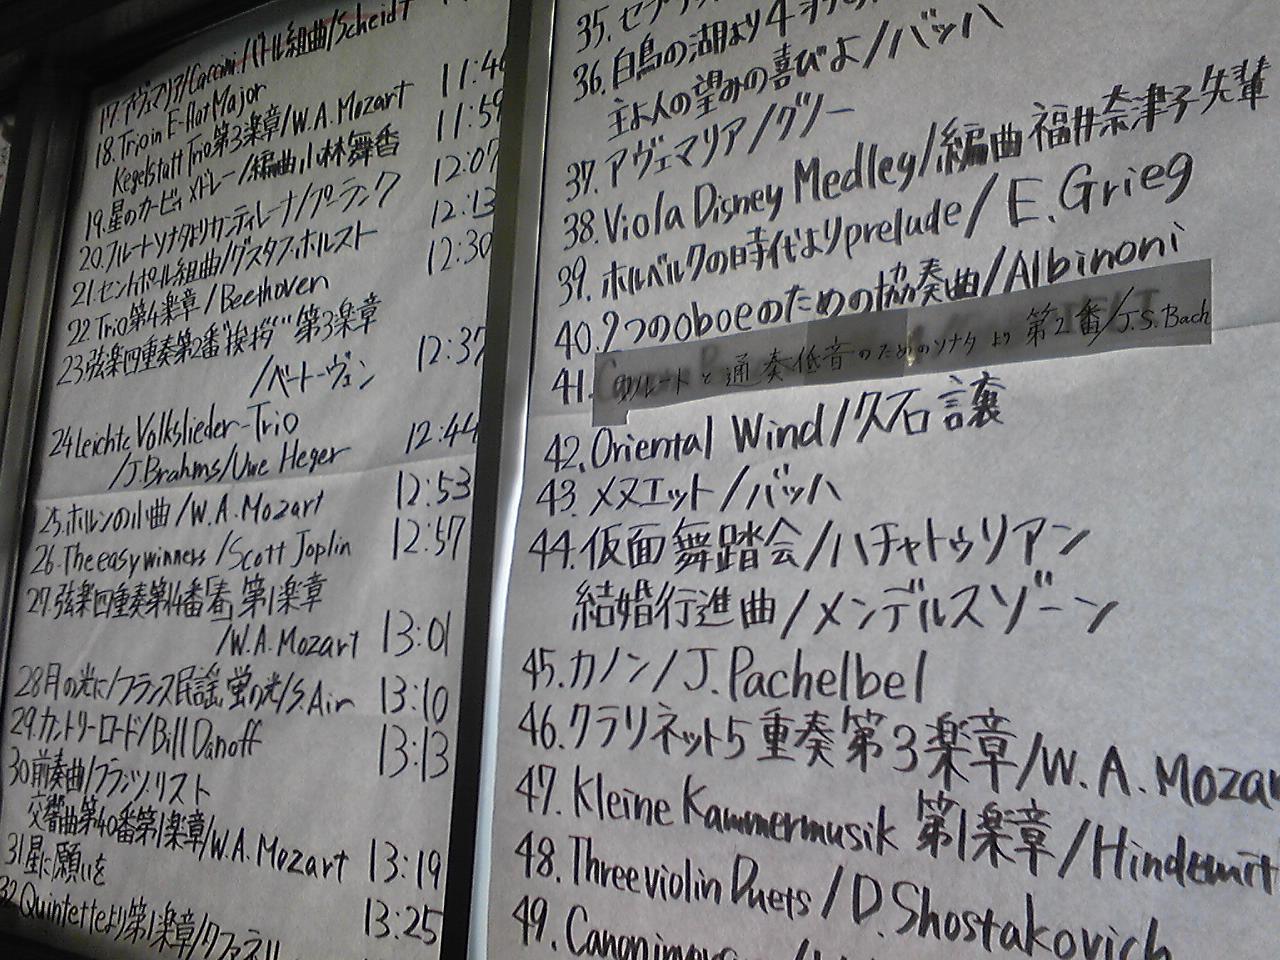 17.アヴェマリア/Caccini/バトル組曲/Scheidt
18.Trio in E-flat Major
Kegelstatt Trio第3楽章/W.A.Mozart 11:46
19.星のカービィメドレー/編曲小林舞香 11:59
20.フルートソナタよりカンティレーナ/プーランク 12:07
21.セントポール組曲/グスタフ・ホルスト 12:13
22.Trio第4楽章/Beethoven 12:30
23弦楽四重奏第2番"挨拶"第3楽章
/ベートーヴェン 12:37
24Leichte Volkslieder-Trio
/J.Brahms/Uwe Heger 12:44
25.ホルンの小曲/W.A.Mozart 12:53
26.The easy winners/Scott Joplin 12:57
27.弦楽四重奏第14番「春」第1楽章
/W.A.Mozart 13:01
28月の光に/フランス民謡,蛍の光/S.Air 13:10
29.カントリーロード/Bill Danoff 13:13
30前奏曲/フランツ・リスト
交響曲第40番第1楽章/W.A.Mozart 13:19
31星に願いを 13:25
32.Quintetteより第1楽章/
35.セ
36.白鳥の湖より4
主よ人の望みの喜びよ/バッハ
37.アヴェマリア/グノー
38.Viola Disney Medley/編曲 福井奈津子先輩
39.ホルベルクの時代よりprelude/E.Grieg
40.2つのoboeのための協奏曲/Albinoni
41.フルートと通奏低音のためのソナタより 第2番/J.S.Bach
42.Oriental Wind/久石譲
43.メヌエット/バッハ
44.仮面舞踏会/ハチャトゥリアン
結婚行進曲/メンデルスゾーン
45.カノン/J.Pachelbel
46.クラリネット5重奏第3楽章/W.A.Mozar
47.Kleine Kammermusik 第1楽章/Hindemit
48.Three violin Duets/D.Shostakovich
49.Canon